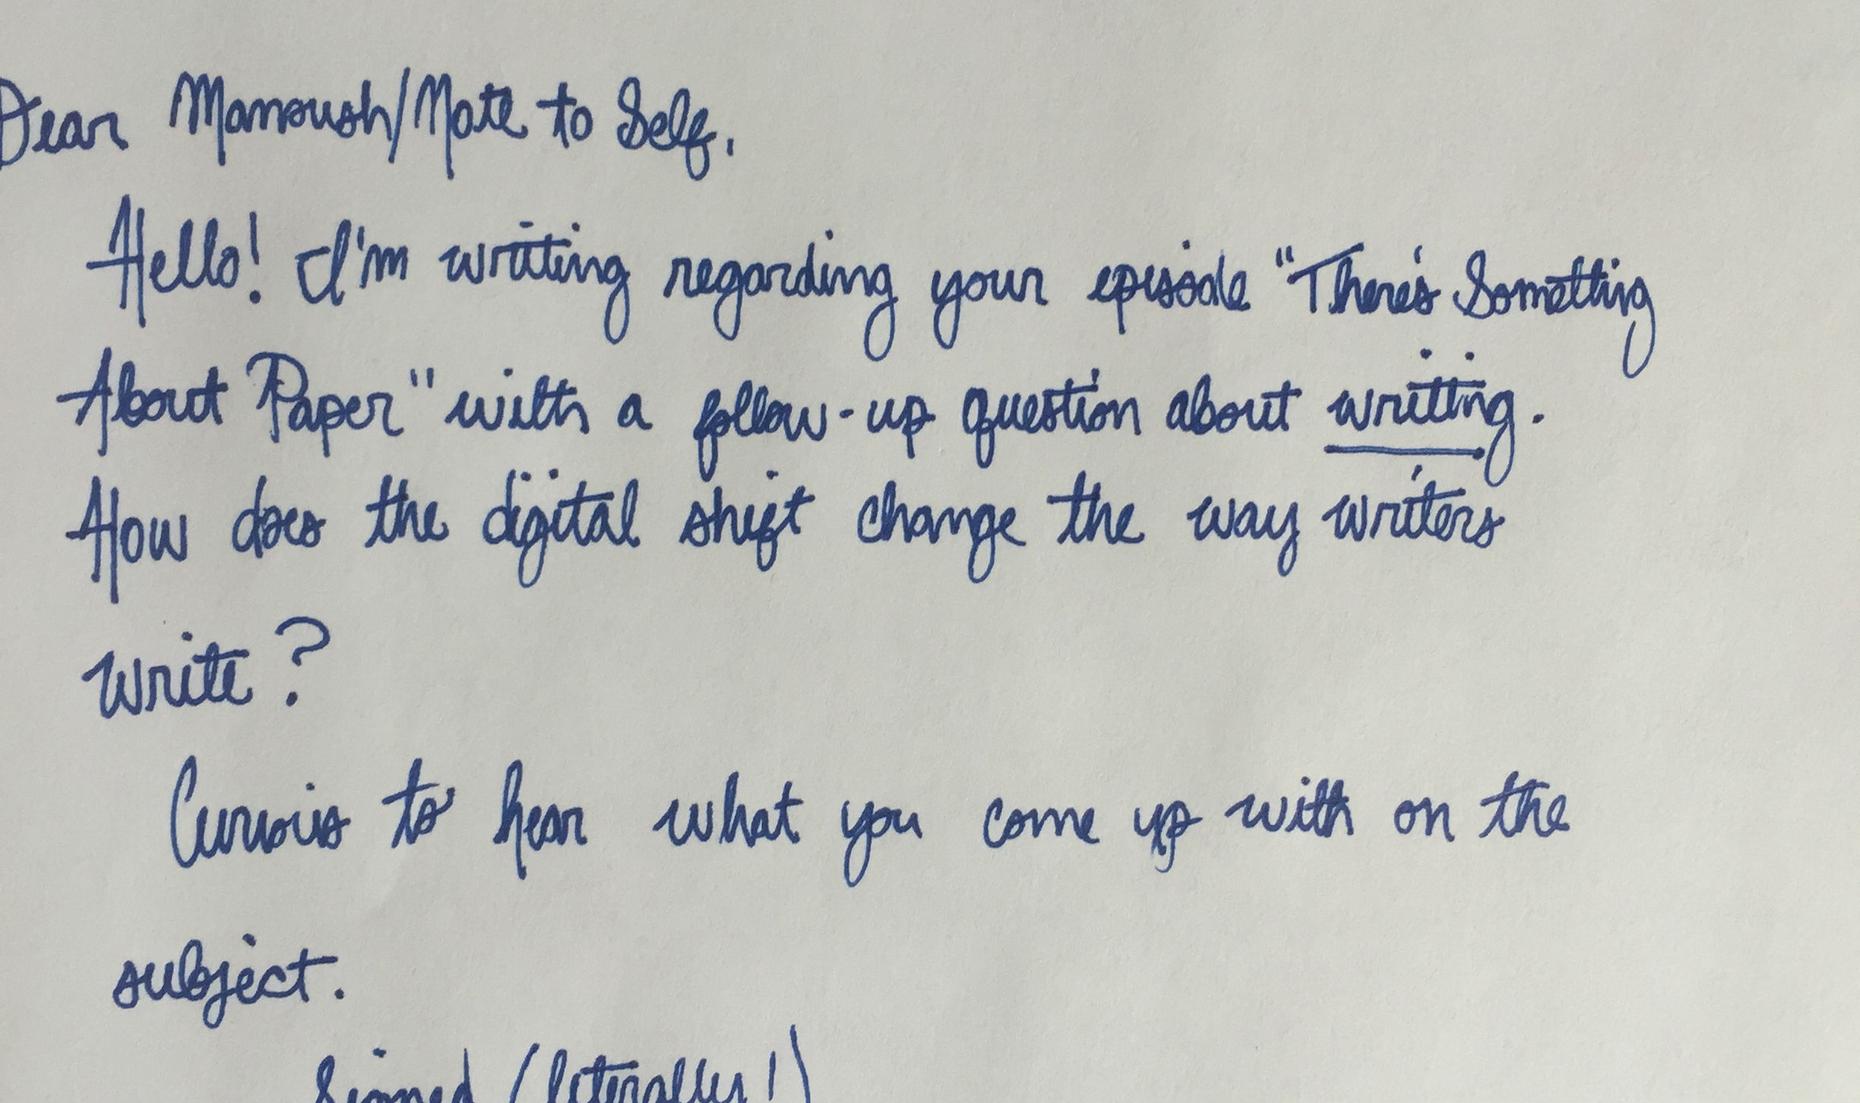 Dear Manoush/Note to Self,
Hello! I'm writing regarding your episode "There's Something
About Paper" with a follow-up question about writing.
How does the digital shift change the way writers
write?
Curious to hear what you come up with on the
subject.
Signed (literally!)